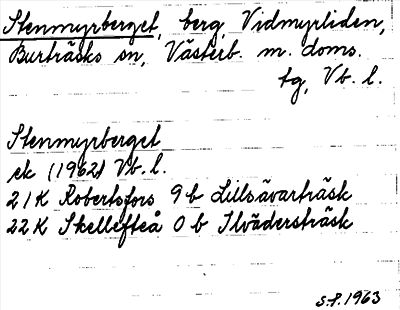 Stenmyrberget, berg, Vidmyrliden,
Burträsks sn, Västerb. m. doms.
tg, Vb. l.
Stenmyrberget
ek (1962) Vb. l.
21K Robertsfors 9b Lillsävarträsk
22K Skellefteå 0b Ilvädersträsk
S.P. 1963